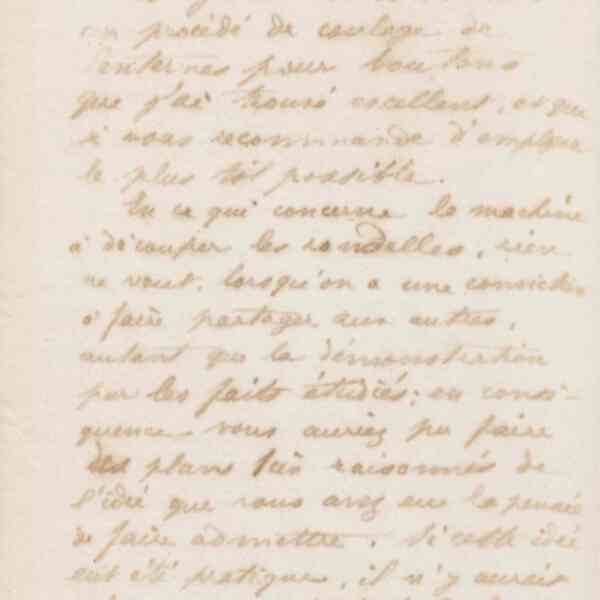 un procédé de coulage de
lanternes pour boutons
que j'ai trouvé excellent, et que
je vous recommande d'employer
le plus tôt possible.
En ce qui concerne la machine
à découper les rondelles, rien
ne vaut, lorsqu'on a une conviction
à faire partager aux autres,
autant que la démonstration
par les faits étudiés; en consé-
quence vous auriez pu faire
des plans très raisonnés de
l'idée que vous avez eu la pensée
de faire admettre. Si cette idée
eut été pratique, il n'y aurait